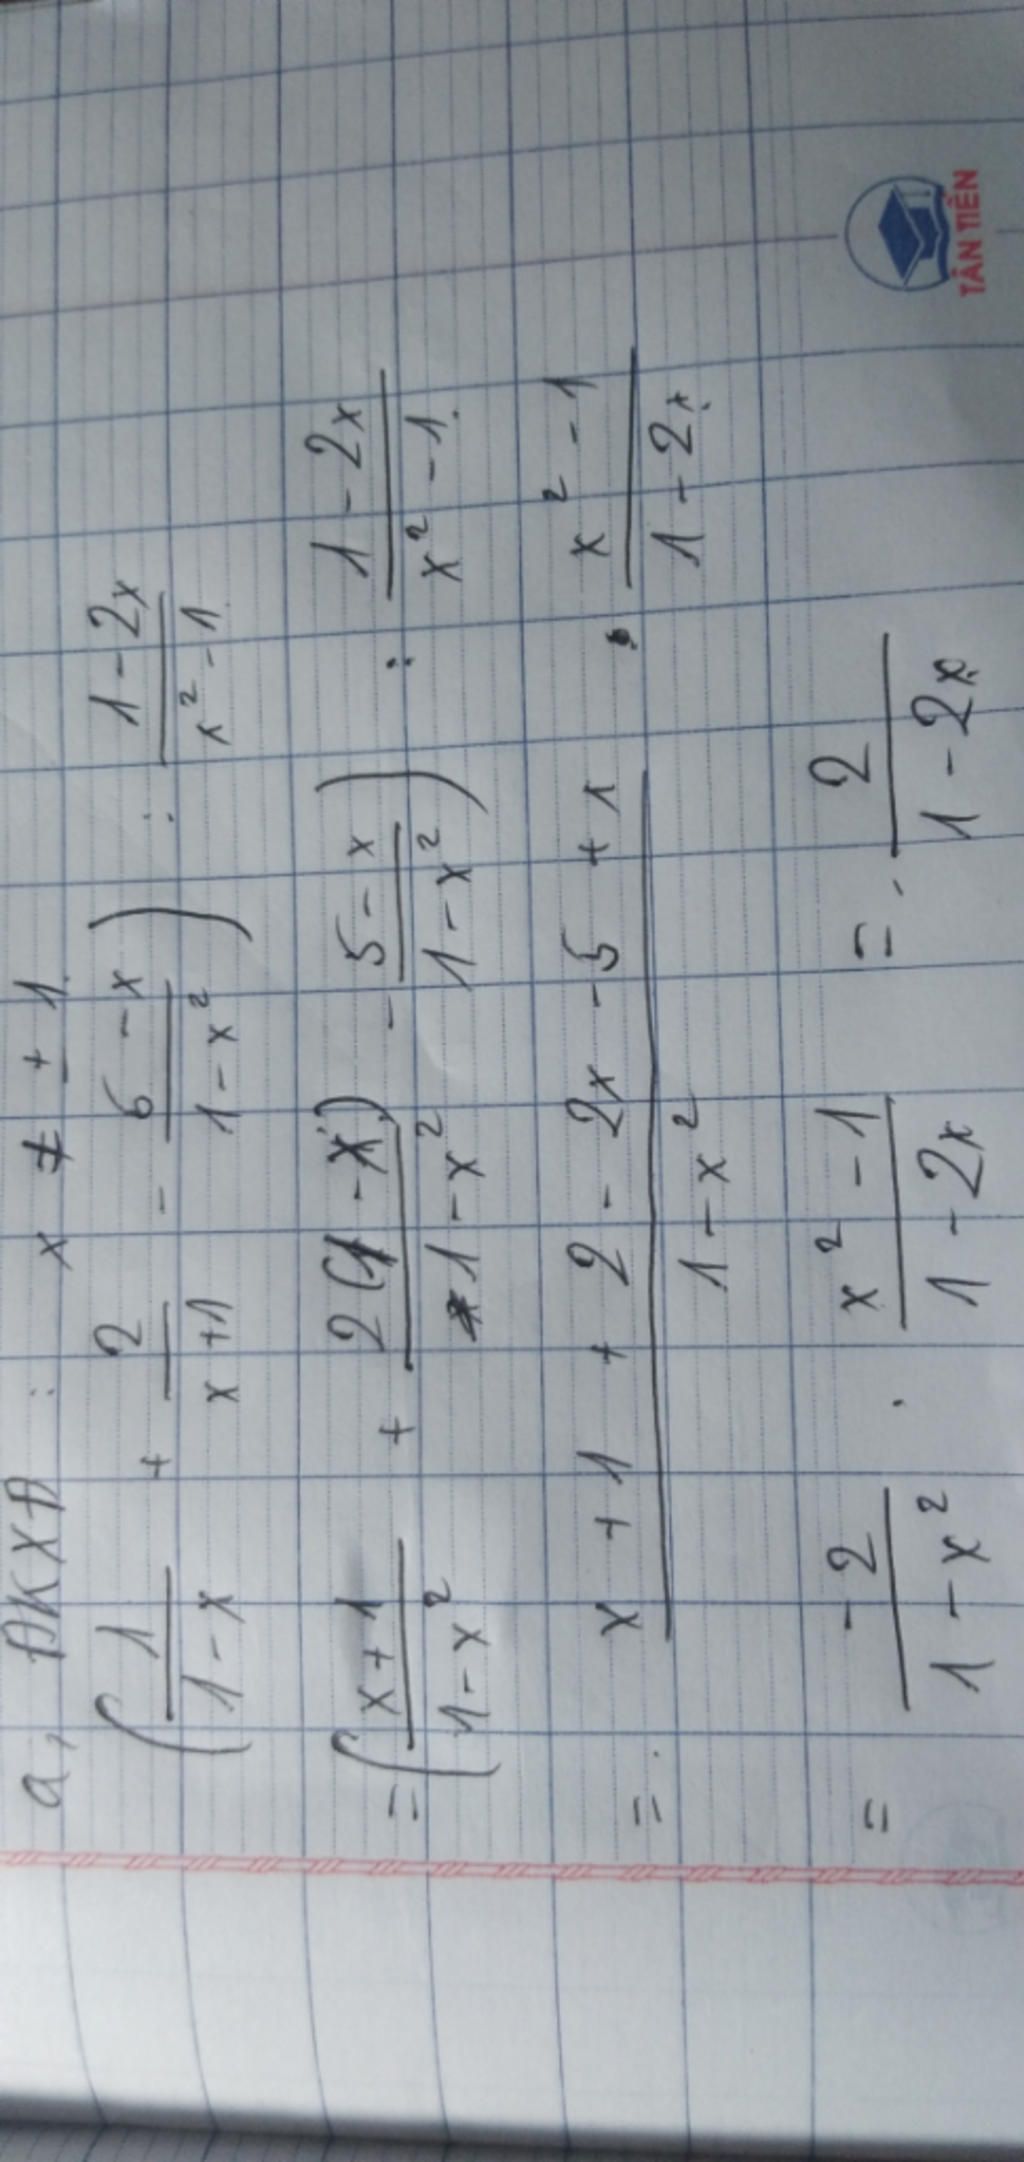 a, ĐKXĐ : x ≠ ± 1.
( 1/(1 - x) + 2/(x + 1) - (5 - x)/(1 - x²) ) : (1 - 2x)/(x² - 1)
= ( (x + 1)/(1 - x²) + 2(1 - x)/(1 - x²) - (5 - x)/(1 - x²) ) : (1 - 2x)/(x² - 1)
= (x + 1 + 2 - 2x - 5 + x)/(1 - x²) . (x² - 1)/(1 - 2x)
= -2/(1 - x²) . (x² - 1)/(1 - 2x) = 2/(1 - 2x)
TÂN TIẾN